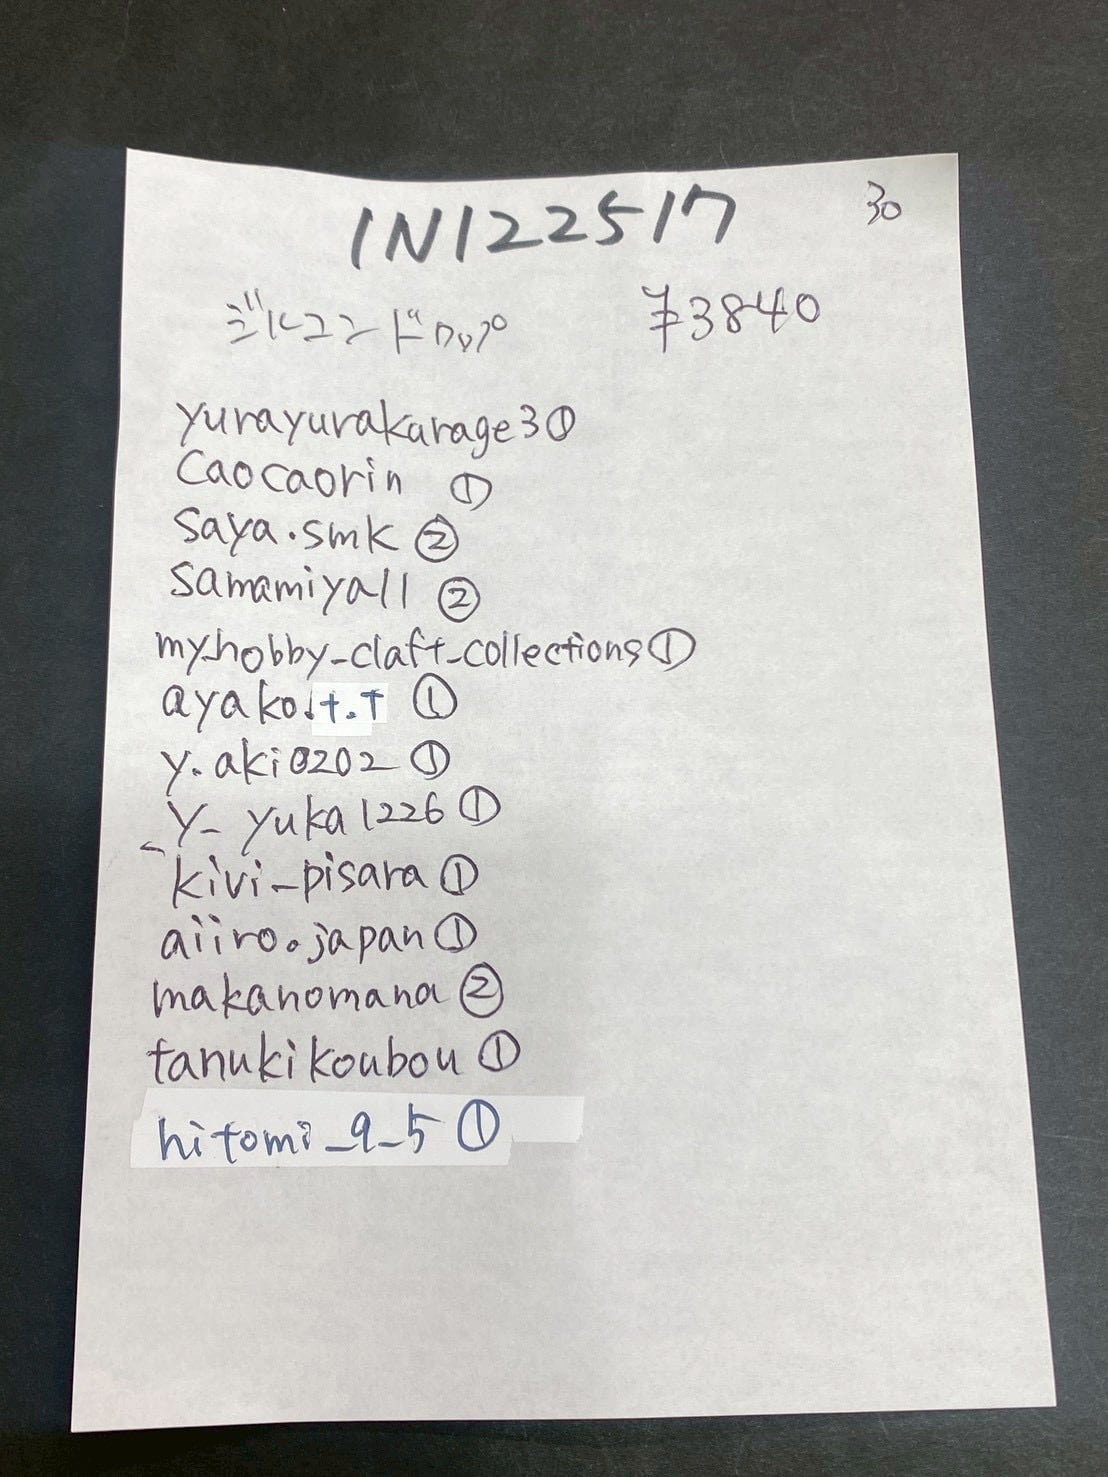 1N122517 30
ジルコンドロップ ¥3840
yurayurakarage3①
Caocaorin ①
saya.smk ②
samamiya11 ②
my.hobby_claft_collections①
ayako.t.T ①
y.aki0202 ①
_y_yuka1226①
kivi_pisara①
aiiro.japan①
makanomana②
tanukikoubou①
hitomi_9_5①